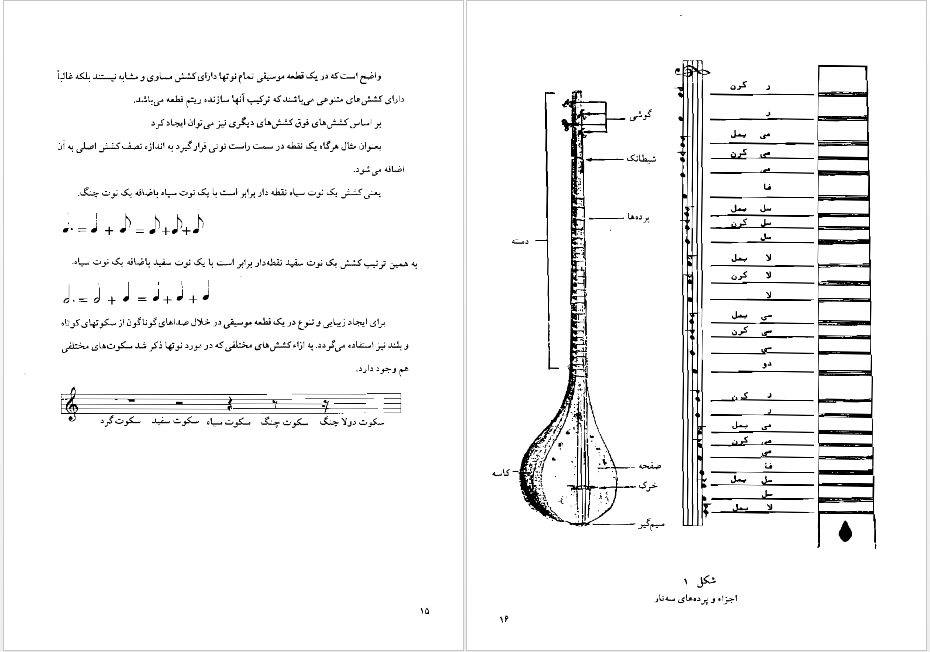 واضح است که در یک قطعه موسیقی تمام نوتها دارای کشش مساوی و مشابه نیستند بلکه غالباً
دارای کشش‌های متنوعی می‌باشند که ترکیب آنها سازنده ریتم قطعه می‌باشد.
بر اساس کشش‌های فوق کشش‌های دیگری نیز می‌توان ایجاد کرد
بعنوان مثال هرگاه یک نقطه در سمت راست نوتی قرار گیرد به اندازه نصف کشش اصلی به آن
اضافه می‌شود.
یعنی کشش یک نوت سیاه نقطه دار برابر است با یک نوت سیاه باضافه یک نوت چنگ.
به همین ترتیب کشش یک نوت سفید نقطه‌دار برابر است با یک نوت سفید باضافه یک نوت سیاه.
برای ایجاد زیبایی و تنوع در یک قطعه موسیقی در خلال صداهای گوناگون از سکوتهای کوتاه
و بلند نیز استفاده می‌گردد. به ازاء کشش‌های مختلفی که در مورد نوتها ذکر شد سکوت‌های مختلفی
هم وجود دارد.
سکوت گرد سکوت سفید سکوت سیاه سکوت چنگ سکوت دولا چنگ
۱۵
گوشی
شیطانک
پرده‌ها
دسته
صفحه
کاسه
خرک
سیم‌گیر
ر کرن
ر
می بمل
می کرن
می
فا
سل بمل
سل کرن
سل
لا بمل
لا کرن
لا
سی بمل
سی کرن
سی
دو
ر کرن
ر
می بمل
می کرن
می
فا
سل بمل
سل
لا بمل
شکل ۱
اجزاء و پرده‌های سه‌تار
۱۶